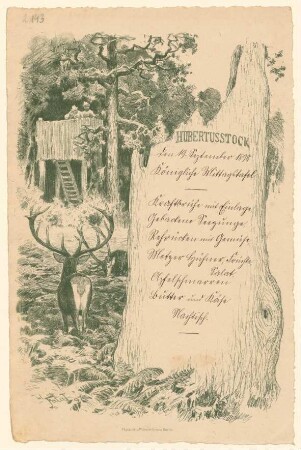 HUBERTUSSTOCK
den 19. September 1898
Königliche Mittagstafel
Kraftbrühe mit Einlage
Gebackene Seezunge
Rehrücken mit Gemüse
Metzer Hühner, Früchte
Salat
Apfelschmarren
Butter und Käse
Nachtisch.